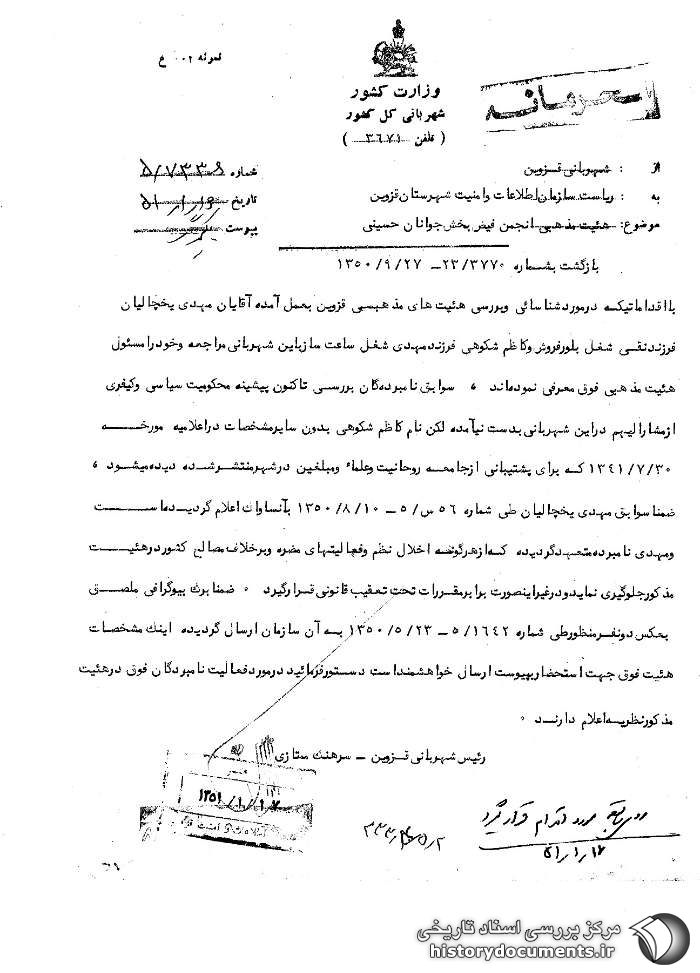 نمونه ۰۰۲ ع
محرمانه
وزارت کشور
شهربانی کل کشور
( تلفن ۳۶۷۱ )
شماره ۵/۷۳۳۹
تاریخ
پیوست
از : شهربانی قزوین
به : ریاست سازمان اطلاعات وامنیت شهرستان قزوین
موضوع : هئیت مذهبی انجمن فیض بخش جوانان حسینی
بازگشت بشماره ۲۳/۳۷۷۰ – ۱۳۵۰/۹/۲۷
با اقداماتیکه درمورد شناسائی وبررسی هئیت های مذهبی قزوین بعمل آمده آقایان مهدی یخچالیان
فرزند نقی شغل بلور فروش وکاظم شکوهی فرزند مهدی شغل ساعت ساز باین شهربانی مراجعه وخود را مسئول
هئیت مذهبی فوق معرفی نموده اند ، سوابق نامبرده گان بررسی تاکنون پیشینه محکومیت سیاسی وکیفری
از مشارالیهم در این شهربانی بدست نیامده لکن نام کاظم شکوهی بدون سایر مشخصات در اعلامیه مورخه
۱۳۴۱/۷/۳۰ که برای پشتیبانی از جامعه روحانیت وعلماء ومبلغین در شهر منتشر شده دیده میشود ،
ضمنا سوابق مهدی یخچالیان طی شماره ۵۶ س/۵ – ۱۳۵۰/۸/۱۰ بآنساواک اعلام گردیده است
ومهدی نامبرده متعهد گردیده که از هرگونه اخلال نظم وفعالیتهای مضره وبرخلاف مصالح کشور در هئیت
مذکور جلوگیری نماید ودر غیر اینصورت برابر مقررات تحت تعقیب قانونی قرار گیرد ۰ ضمنا برگ بیوگرافی ملصق
بعکس دونفر منظور طی شماره ۵/۱۶۴۲ – ۱۳۵۰/۵/۲۳ به آن سازمان ارسال گردیده اینک مشخصات
هئیت فوق جهت استحضار بپیوست ارسال خواهشمند است دستور فرمائید درمورد فعالیت نامبردگان فوق در هئیت
مذکور نظریه اعلام دارند ۰
رئیس شهربانی قزوین – سرهنگ ممتازی
۱۳۵۱/۱/۱۷
مورد اقدام قرار گیرد
۵۱/۱/۱۷
مرکز بررسی اسناد تاریخی
historydocuments.ir